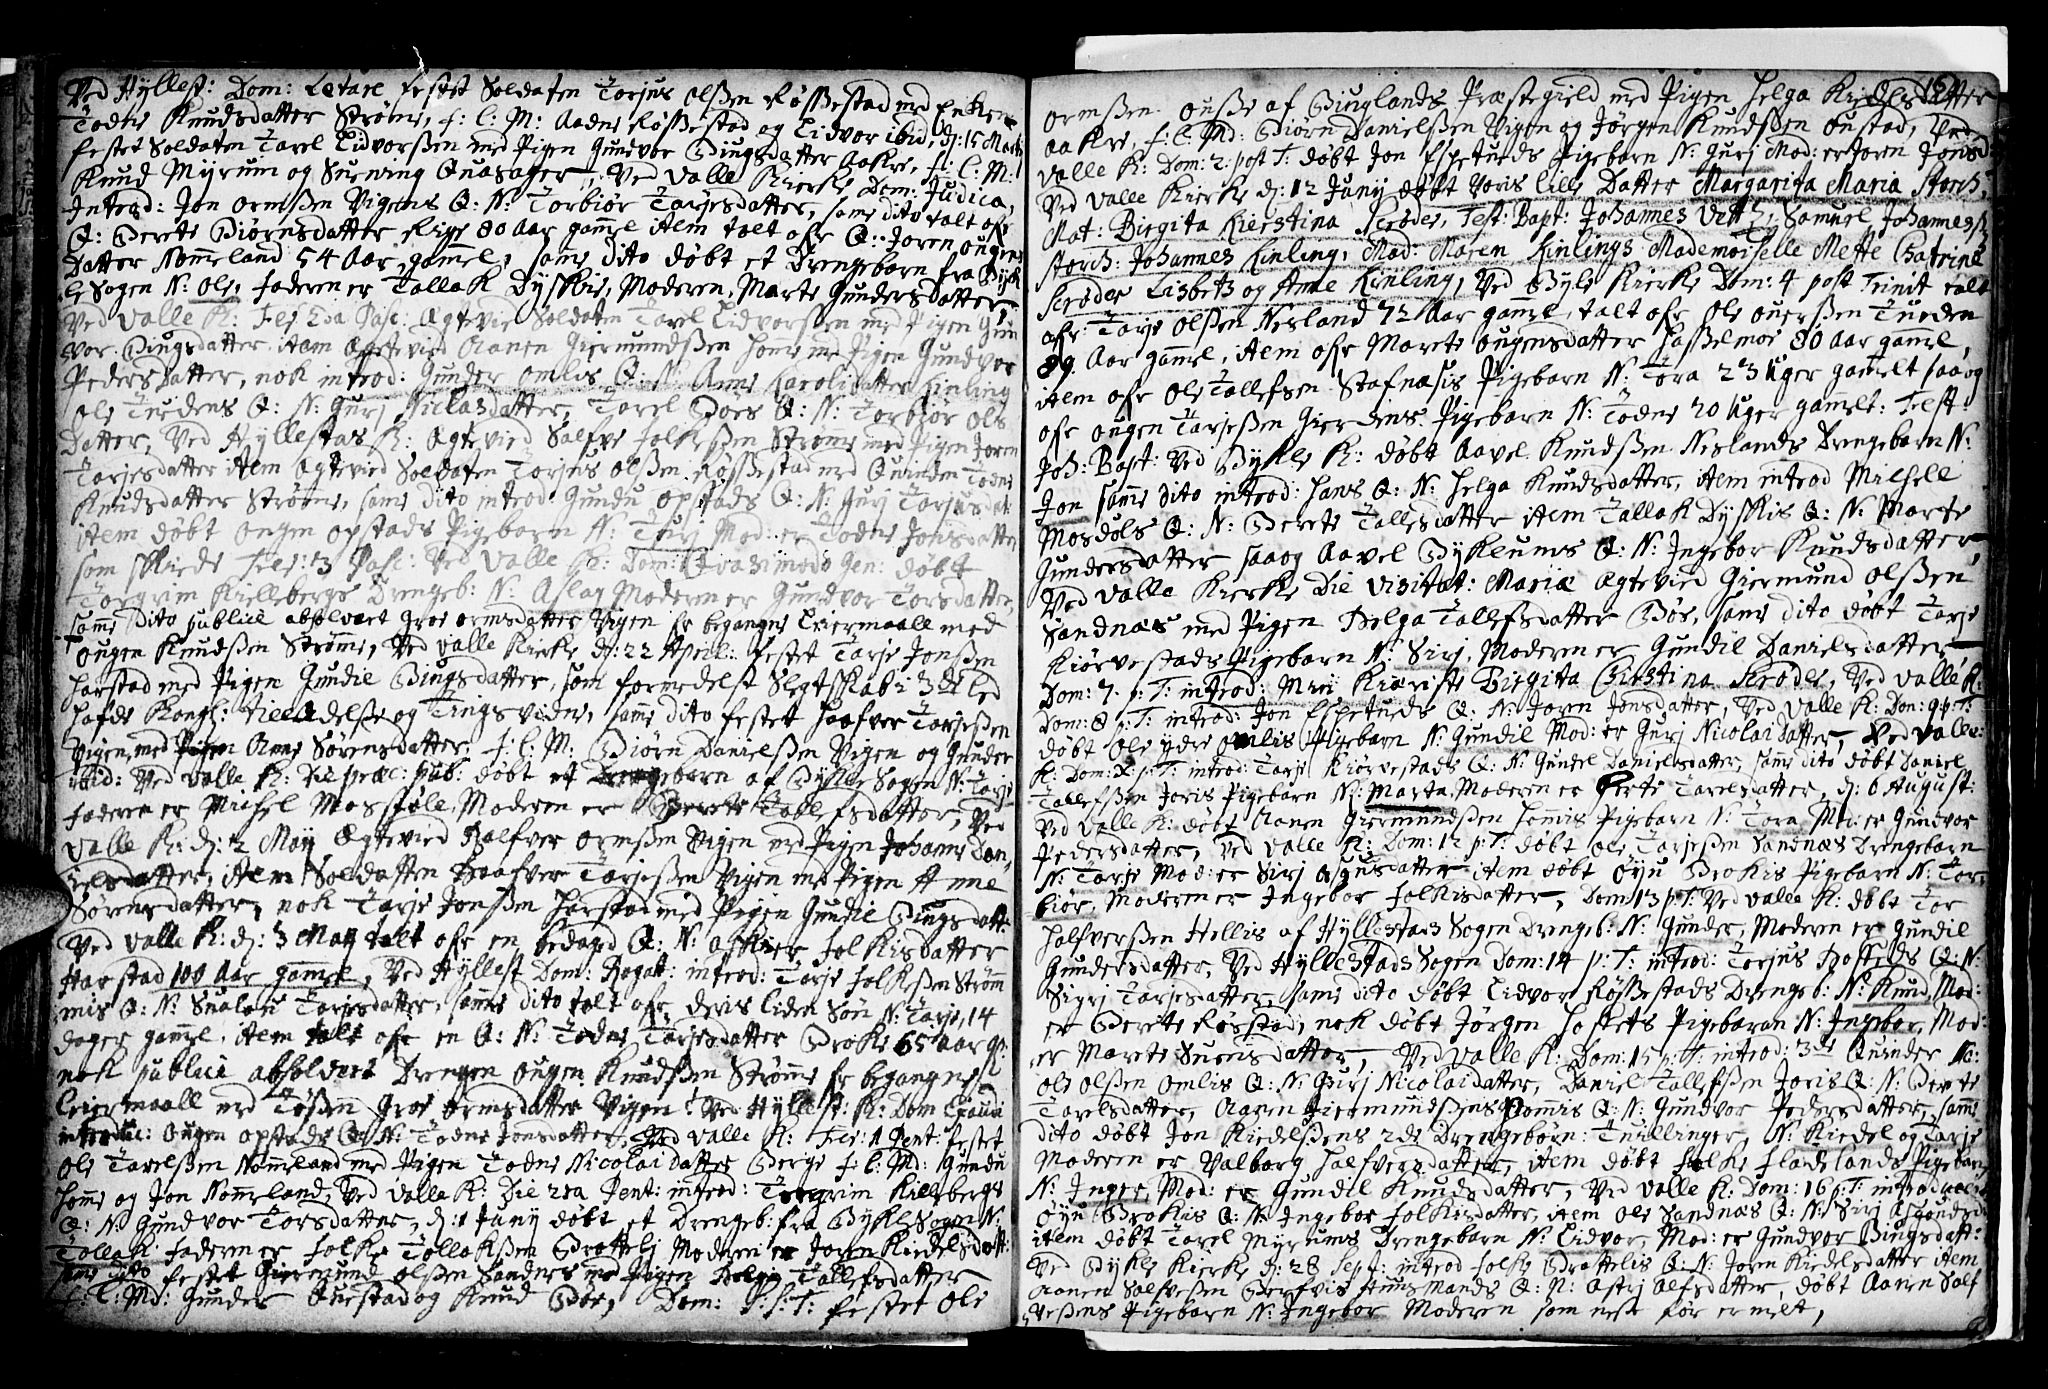 Ved Hyllest: Dom: Letare festet Soldaten Torjus Olsßen Røssestad med Enken
Todne Knudsdatter Strømme, f: l: M: Aadne Røssestad og Eidvor ibid, dj: 15 Martj
festet Soldaten Tarel Eidvorsßen med Pigen Gundvor Biugsdatter Aakre, f: l: M:
Knud Myrum og Suening Quasager. Ved Valle Kierke Dom: Judica,
Introd: Jon Ormsßen Vigens Q: N: Torbiør Tarjesdatter, samme dito talt ofr
Q: Berete Biørnsdatter Rige 80 Aar gammel item talt ofr Q: Joren Ougens
Datter Nommeland 54 Aar gammel, samme dito døbt et Drengebarn fra Byk
le Sogen N: Ole, faderen er Tallak Dysskie, Moderen, Marte Gundersdatter,
Ved Valle K: Fer: 2da Pasc: Ægtevied Soldaten Tarel Eidvorsßen med Pigen Gun
vor Biugsdatter, item Ægtevied Aanen Giermundsßen Homme med Pigen Gundvor
Pedersdatter, nok introd: Gunder Omlis Q: N: Anne Karolidatter Kinling
Ole Tuedens Q: N: Gurj Niclasdatter, Tarel Bøes Q: N: Torbiør Ols
Datter, Ved Hyllestas K: Ægtevied Salfve Folkesßen Strømme med Pigen Joren
Tarjesdatter item Ægtevied Soldaten Torjus Olsßen Røssestad med Quinden Todne
Knudsdatter Strømme, samme dito introd: Gundu Opstads Q: N: Gurj Tarjusdat:
item døbt Ougen Opstads Pigebarn N: Turj Mod: er Todne Jonsdatter
som skeede Fer: 3 Pasc: Ved Valle K: Dom: Qvasimodo Gen: døbt
Torgrim Killebergs Drengeb: N: Aslag Moderen er Gundvor Torsdatter,
samme dito publice absolvert Groe Ormsdatter Vigen for begangne Leiermaall med
Ougen Knudsßen Strømme, Ved Valle Kierke dj: 22 April: festet Tarje Jonsßen
Harstad med Pigen Gundie Biugsdatter, som formedelst Slegtskab i 3die led
hafde Kongl: tilladelse og Tingsvidne, samme dito festet Haafver Tarjesßen
Vigen, med Pigen Anne Sørensdatter, f: l: M: Biørn Danielsßen Vigen og Gunder
ibid: Ved Valle K: Die præc: pub: døbt et Drengebarn af Bykle Sogen N: Tarje
faderen er Mikel Mosdøle, Moderen er Berete Tallefsdatter, Ved
Valle K: dj: 2 May Ægtevied Halfver Ormsßen Vigen med Pigen Johanne Dan,,
ielsdatter, item Soldatten Haafver Tarjesßen Vigen med Pigen Anne
Sørensdatter, nok Tarje Jonsßen Harstad med Pigen Gundie Biugsdatt:
Ved Valle K: dj: 3 May talt ofr en bedaged Q: N: Asskier Folkisdatter
Harstad 100 Aar gammel, Ved Hyllest Dom: Rogat: introd: Tarje Folkesßen Strøm
mis Q: N: Sualou Tarjesdatter, samme dito talt ofr deris liden Søn N: Tarje, 14
dager gammel, item talt ofr en Q: N: Todne Tarjesdatter Broke 65 Aar g:
nok publice absolvert Drengen Ougen Knudsßen Strømme for begangne
Leiermaall med Tøßen Groe Ormsdatter Vigen: Ved Hyllest: K: Dom Exaudi
introduc: Ougen Opstads Q: N: Todne Jonsdatter, Ved Valle K: Fer: 1 Pent: festet
Ole Tarelsßen Nommeland med Pigen Todne Nicolaidatter Berge f: l: Md: Gundu
Homme og Jon Nommeland, Ved Valle K: Die 2da Pent: introd: Torgrim Killebergs
Q: N: Gundvor Torsdatter, dj: 1 Junij døbt et Drengeb: fra Bykle Sogen N:
Tollak faderen er Folke Tollaksßen Brottelj Moderen er Joren Kiedelsdatt:
samme dito festet Giermund Olsßen Sandnes med Pigen Helge Tallefsdatter
f: l: Md: Gunder Questad og Knud Bøe, Dom: 1. p: T: festet Ole
151
Ormsßen Ouse af Biuglands Præstegield med Pigen Helga Kiedelsdatter
Aakre, f: l: Md: Biørn Danielsßen Vigen og Jørgen Knudsßen Oustad, Ved
Valle K: Dom: 2. post T: døbt Jon Espetueds Pigebarn N: Gurj Mod: er Joren Jonsd:
Ved Valle Kierke dj: 12 Junij døbt Voris lille Datter Margarita Maria Storch,
Mat: Birgita Kierstina Scrøder, Test: Bapt: Johannes Vett, Samuel Johannesß
Storch: Johannes Kinling, Mad: Maren Kinlings Mademoiselle Mette Catrine
Scrøder Lisbeth og Anne Kinling, Ved Bykle Kierke Dom: 4 post Trinit talt
ofr Tarje Olsßen Nesland 72 Aar gammel, talt ofr Ole Ouersßen Tueden
89 Aar gammel, item ofr Marete Ougensdatter Hasselmoe 80 Aar gammel,
item ofr Ole Tallefsen Stafnæsis Pigebarn N: Tora 23 Uger gamelt saa og
ofr Ougen Tarjesßen Gierdens Pigebarn N: Todne 20 Uger gammelt: Fest:
Joh: Bapt: Ved Bykle K: døbt Aavel Knudsßen Neslands Drengebarn N:
Jon samme dito introd: hans Q: N: Helga Knudsdatter, item introd Mikell
Mosdøls Q: N: Berete Tallefsdatter item Tallak Dysskis Q: N: Marte
Gundersdatter saa og Aavel Bykleums Q: N: Ingebor Knudsdatter,
Ved Valle Kierke Die Visitat: Mariæ Ægtevied Giermund Olsßen
Sandnæs med Pigen Helga Tallefsdatter Bøe, samme dito døbt Tarje
Kiørvestads Pigebarn N: Sirj Moderen er Gundil Danielsdatter
Dom: 7. p: T: introd: Min Kiæriste Birgita Christina Scrøder, Ved Valle K:
Dom: 8 p: T: introd: Jon Espetueds Q: N: Joren Jonsdatter, Ved Valle K: Dom: 9 p: T:
døbt Ole Ydre Omlis Pigebarn N: Gundil Mod: er Gurj Nicolaidatter, Ved Valle
K: Dom: X: p: T: introd: Tarje Kiørvestads Q: N: Gundil Danielsdatter, samme dito døbt Daniel
Tallefsßen Joris Pigebarn N: Marta Moderen er Berte Tarelsdatter, dj: 6 August:
Ved Valle K: døbt Aanen Giermundsßen Hommis Pigebarn N: Tora Mo: er Gundvor
Pedersdatter, Ved Valle K: Dom: 12 p: T: døbt Ole Tarjesßen Sandnæs Drengebarn
N: Tarje Mod: er Sirj Asgusdatter item døbt Øyu Brokis Pigebarn N: Tor,,
biør, Moderen er Ingebor Folkisdatter, Dom: 13 p: T: Ved Valle K: døbt Tor
Halfversßen Hellis af Hyllestads Sogen Drengeb: N: Gunder, Moderen er Gundil
Gundersdatter, Ved Hyllestads Sogen Dom: 14 p: T: introd: Torjus Hoftets Q: N:
Sigrj Tarjesdatter, samme dito døbt Eidvor Røssestads Drengeb: N: Knud, Mod:
er Berete Røsstad, nok døbt Jørgen Hoftets Pigebaran N: Ingebor, Mod:
er Marete Suensdatter, Ved Valle K: Dom: 15 p: T: introd: 3de Quinder Na:
Ole Olsßen Omlis Q: N: Gurj Nicolaidatter, Daniel Tallefsßen Joris Q: N: Berete
Tarelsdatter, Aanen Giermundsßens Hommis Q: N: Gundvor Pedersdatter, samme
dito døbt Jon Kiedelsßens 2de Drengebørn: Tuillinger, N: Kiedel og Tarje
Moderen er Valborg Halfversdatter, item døbt Folke Fladelands Pigebarn
N: Inger, Mod: er Gundil Knudsdatter, Ved Valle K: Dom: 16 p: T: introducert
Øyu Brokis Q: N: Ingebor Folkisdatter, item Ole Sandnæs Q: N: Sirj Asgundsd
item døbt Tarel Myrums Drengebarn N: Eidvor, Mod: er Gundvor Biugsdatt:
Ved Bykle Kierke dj: 28 Sept: introd Folke Brottelis Q: N: Joren Kiedelsdatter item
Aanen Salfvesßen Q: N: Astrj Alfsdatter, døbt Aanen Salf
vesßens Pigebarn N: Ingebor Moderen som nest før er melt,